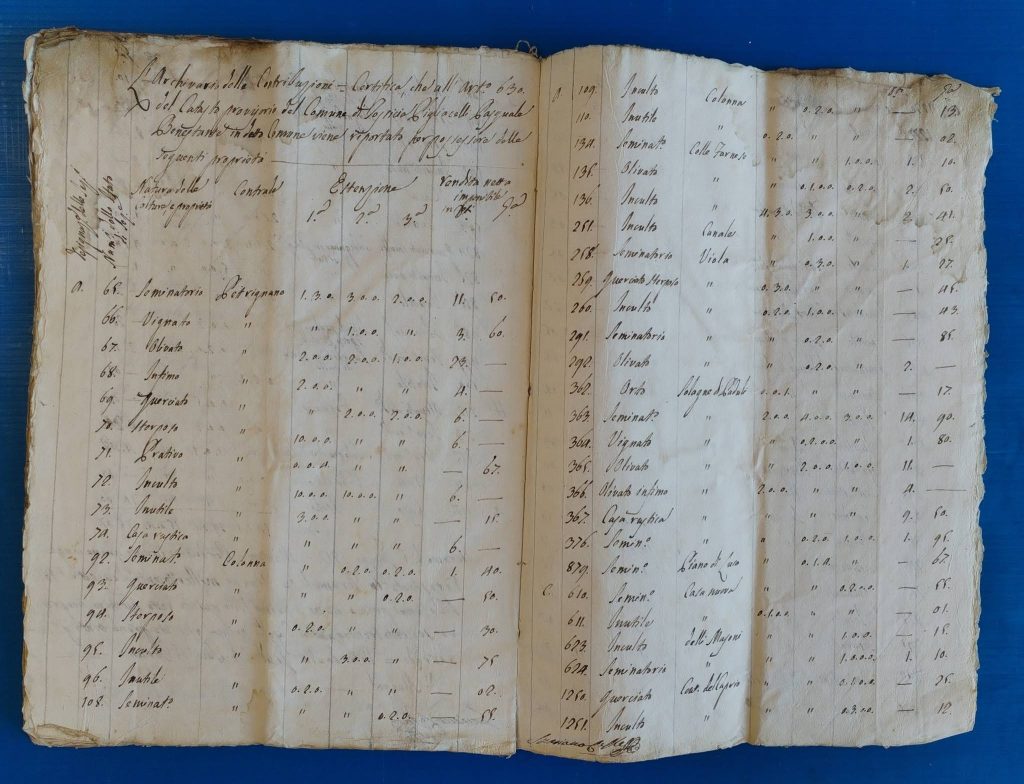 L'Archivario delle Contribuzioni = Certifica che all' Art.º 630.
del Catasto provisorio del Comune di
Benestante in detto Comune viene riportato per possessore delle
seguenti proprietà
Natura delle Contrade Estenzione rendita netta
imponibile
1.ª 2.ª 3.ª
a. 65. Seminatorio Petrignano 1. 3. 0. 3. 0. 0. 2. 0. 0. 11. 50.
66. Vignato " " 1. 0. 0. " 3. 60.
67. Olivato " 2. 0. 0. 2. 0. 0. 1. 0. 0. 23. —
68. Infimo " 2. 0. 0. " " 4. —
69. Querciato " " 2. 0. 0. 2. 0. 0. 6. —
70. Sterposo " 10. 0. 0. " " 6. —
71. Prativo " 0. 0. 4. " " — 67.
72. Inculto " 10. 0. 0. 10. 0. 0. " 6. —
73. Inutile " 3. 0. 0. " " — 15.
74. Casa rustica " " " " 6. —
92. Seminat.º Colonna " 0. 2. 0. 0. 2. 0. 1. 40.
93. Querciato " " " 0. 2. 0. — 50.
94. Sterposo " 0. 2. 0. " " — 30.
95. Inculto " " 3. 0. 0. — — 75
96. Inutile " 0. 2. 0. " " — 02.
108. Seminat.º " " " 0. 2. 0. — 55.
109. Inculto Colonna " 0. 2. 0. " — 13.
110. Inutile " 0. 2. 0. " " — 02.
134. Seminat.º Colle Farnoso " " 1. 0. 0. 1. 10.
135. Olivato " " 0. 1. 0. 0. 2. 0. 2. 50.
136. Inculto " 4. 3. 0. 3. 0. 0. " 2. 41.
251. Inculto Canale " 1. 0. 0. " — 25.
258. Seminatorio Viola " 0. 3. 0. " 1. 27.
259. Querciato Sterposo " 0. 3. 0. " " — 45.
260. Inculto " 0. 2. 0. 1. 0. 0. " — 43.
291. Seminatorio " " 0. 2. 0. " — 85.
292. Olivato " " 0. 2. 0. " 2. —
362. Orto 0. 0. 1. " " — 17.
363. Seminat.º " 2. 0. 0. 4. 0. 0. 3. 0. 0. 14. 90.
364. Vignato " " 0. 2. 0. 0. " 1. 80.
365. Olivato " " 2. 0. 0. 1. 0. 0. 11. —
366. Olivato infimo " 2. 0. 0. " " 4. —
367. Casa rustica " " " " 9. 50.
376. Semin.º " " 0. 2. 0. 1. 0. 0. 1. 95.
879. Semin.º Piano di " 0. 1. 4. " — 67.
C. 610. Semin.º Casa nuova " " 0. 2. 0. — 55.
611. Inutile " 0. 1. 0. 0. " " — 01.
623. Inculto delli Masoni " " 1. 0. 0. — 15.
624. Seminatorio " " " 1. 0. 0. 0. 1. 10.
1250. Querciato Cost. del Caprio " " — 25.
1251. Inculto " " 0. 3. 0. 0. " — 12.